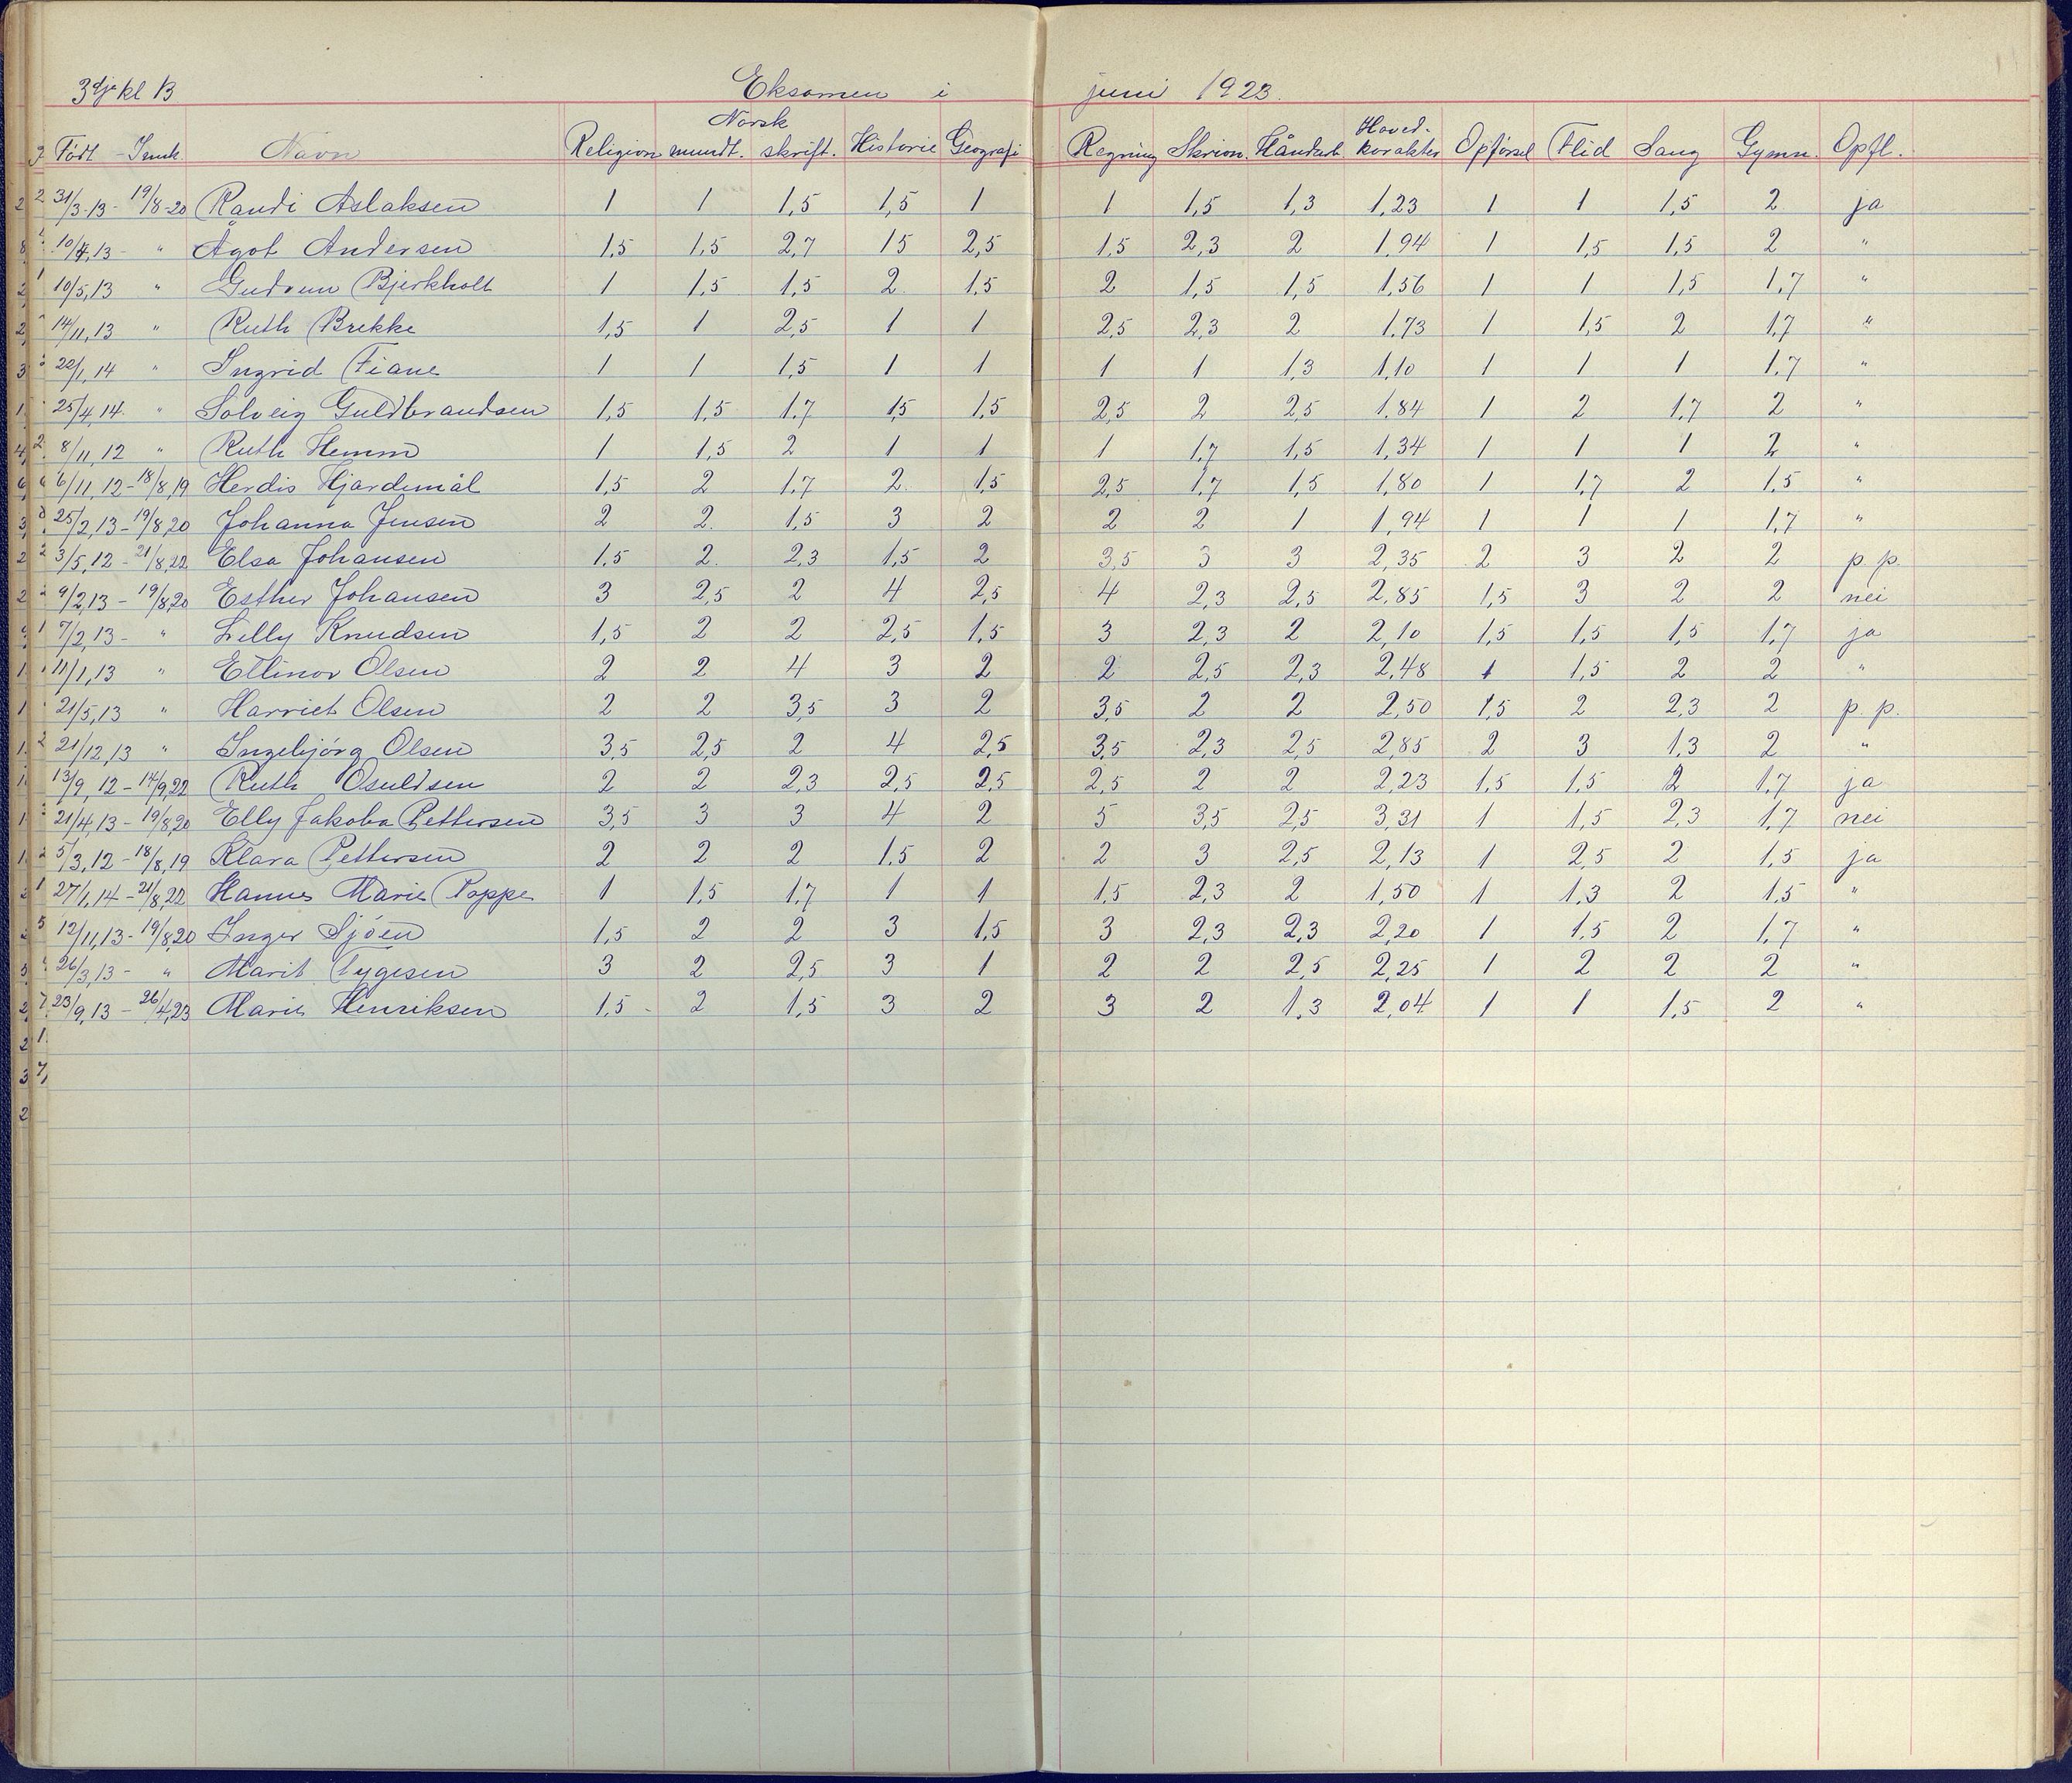 3dje kl B Eksamen i juni 1923.
Norsk Hoved-
Født - Innk. Navn Religion mundt. skrift. Historie Geografi Regning Skrivn. Håndarb. karakter Opførsel Flid Sang Gymn. Opfl.
31/3-13 - 19/8-20 Randi Aslaksen 1 1 1,5 1,5 1 1 1,5 1,3 1,23 1 1 1,5 2 ja
10/4,13 - " Ågot Andersen 1,5 1,5 2,7 15 2,5 1,5 2,3 2 1,94 1 1,5 1,5 2 "
10/5,13 " Gudrun Bjerkholt 1 1,5 1,5 2 1,5 2 1,5 1,5 1,56 1 1 1,5 1,7 "
14/11,13 " Ruth Brekke 1,5 1 2,5 1 1 2,5 2,3 2 1,73 1 1,5 2 1,7 "
22/1,14 " Ingrid Fiane 1 1 1,5 1 1 1 1 1,3 1,10 1 1 1 1,7 "
25/4,14. " Solveig Guldbrandsen 1,5 1,5 1,7 1,5 1,5 2,5 2 2,5 1,84 1 2 1,7 2 "
8/11,12 " Ruth Hemm 1 1,5 2 1 1 1 1,7 1,5 1,34 1 1 1 2 "
6/11,12 - 18/8,19 Herdis Hjardemål 1,5 2 1,7 2 1,5 2,5 1,7 1,5 1,80 1 1,7 2 1,5 "
25/2,13 - 19/8,20 Johanna Jensen 2 2 1,5 3 2 2 2 1 1,94 1 1 1 1,7 "
3/5,12 - 21/8,22 Elsa Johansen 1,5 2 2,3 1,5 2 3,5 3 3 2,35 2 3 2 2 p. p.
9/2,13 - 19/8,20 Esther Johansen 3 2,5 2 4 2,5 4 2,3 2,5 2,85 1,5 3 2 2 nei
7/2,13 - " Lilly Knudsen 1,5 2 2 2,5 1,5 3 2,3 2 2,10 1,5 1,5 1,5 1,7 ja
11/1,13 " Ellinor Olsen 2 2 4 3 2 2 2,5 2,3 2,48 1 1,5 2 2 "
21/5,13 " Harriet Olsen 2 2 3,5 3 2 3,5 2 2 2,50 1,5 2 2,3 2 p. p.
21/12,13 " Ingebjørg Olsen 3,5 2,5 2 4 2,5 3,5 2,3 2,5 2,85 2 3 1,3 2 "
13/9,12 - 14/9,22 Ruth Osuldsen 2 2 2,3 2,5 2,5 2,5 2 2 2,23 1,5 1,5 2 1,7 ja
21/4,13 - 19/8,20 Elly Jakoba Pettersen 3,5 3 3 4 2 5 3,5 2,5 3,31 1 1,5 2,3 1,7 nei
5/3,12 - 18/8,19 Klara Pettersen 2 2 2 1,5 2 2 3 2,5 2,13 1 2,5 2 1,5 ja
27/1,14 - 21/8,22 Hanne Marie Poppe 1 1,5 1,7 1 1 1,5 2,3 2 1,50 1 1,3 2 1,5 "
12/11,13 - 19/8,20 Inger Sjøen 1,5 2 2 3 1,5 3 2,3 2,3 2,20 1 1,5 2 1,7 "
26/3,13 - " Marit Tygesen 3 2 2,5 3 1 2 2 2,5 2,25 1 2 2 2 "
23/9,13 - 26/4,23 Marie Henriksen 1,5 2 1,5 3 2 3 2 1,3 2,04 1 1 1,5 2 "